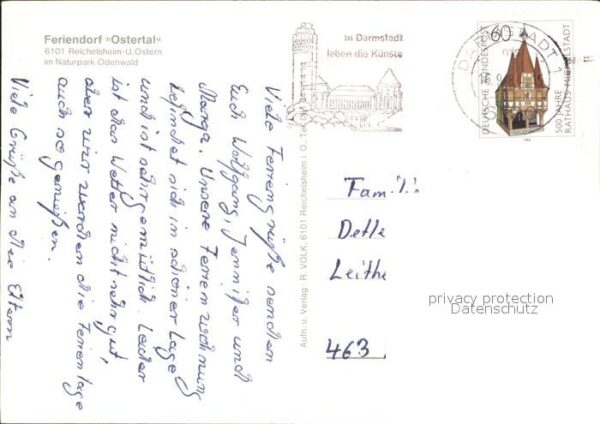 Feriendorf »Ostertal«
6101 Reichelsheim-U.Ostern
im Naturpark Odenwald
Viele Feriengrüße senden
Euch Wolfgang, Jennifer und
Marga. Unsere Ferienwohnung
befindet sich in schöner Lage
und ist sehr gemütlich. Leider
ist das Wetter nicht sehr gut,
aber wir werden die Ferientage
auch so genießen.
Viele Grüße an die Eltern
Aufn. u. Verlag R. VOLK, 6101 Reichelsheim i. O., Tel.
In Darmstadt
leben die Künste
DARMSTADT
60
DEUTSCHE BUNDESPOST
500 JAHRE
RATHAUS MICHELSTADT
Famili
Detle
Leithe
463
privacy protection
Datenschutz